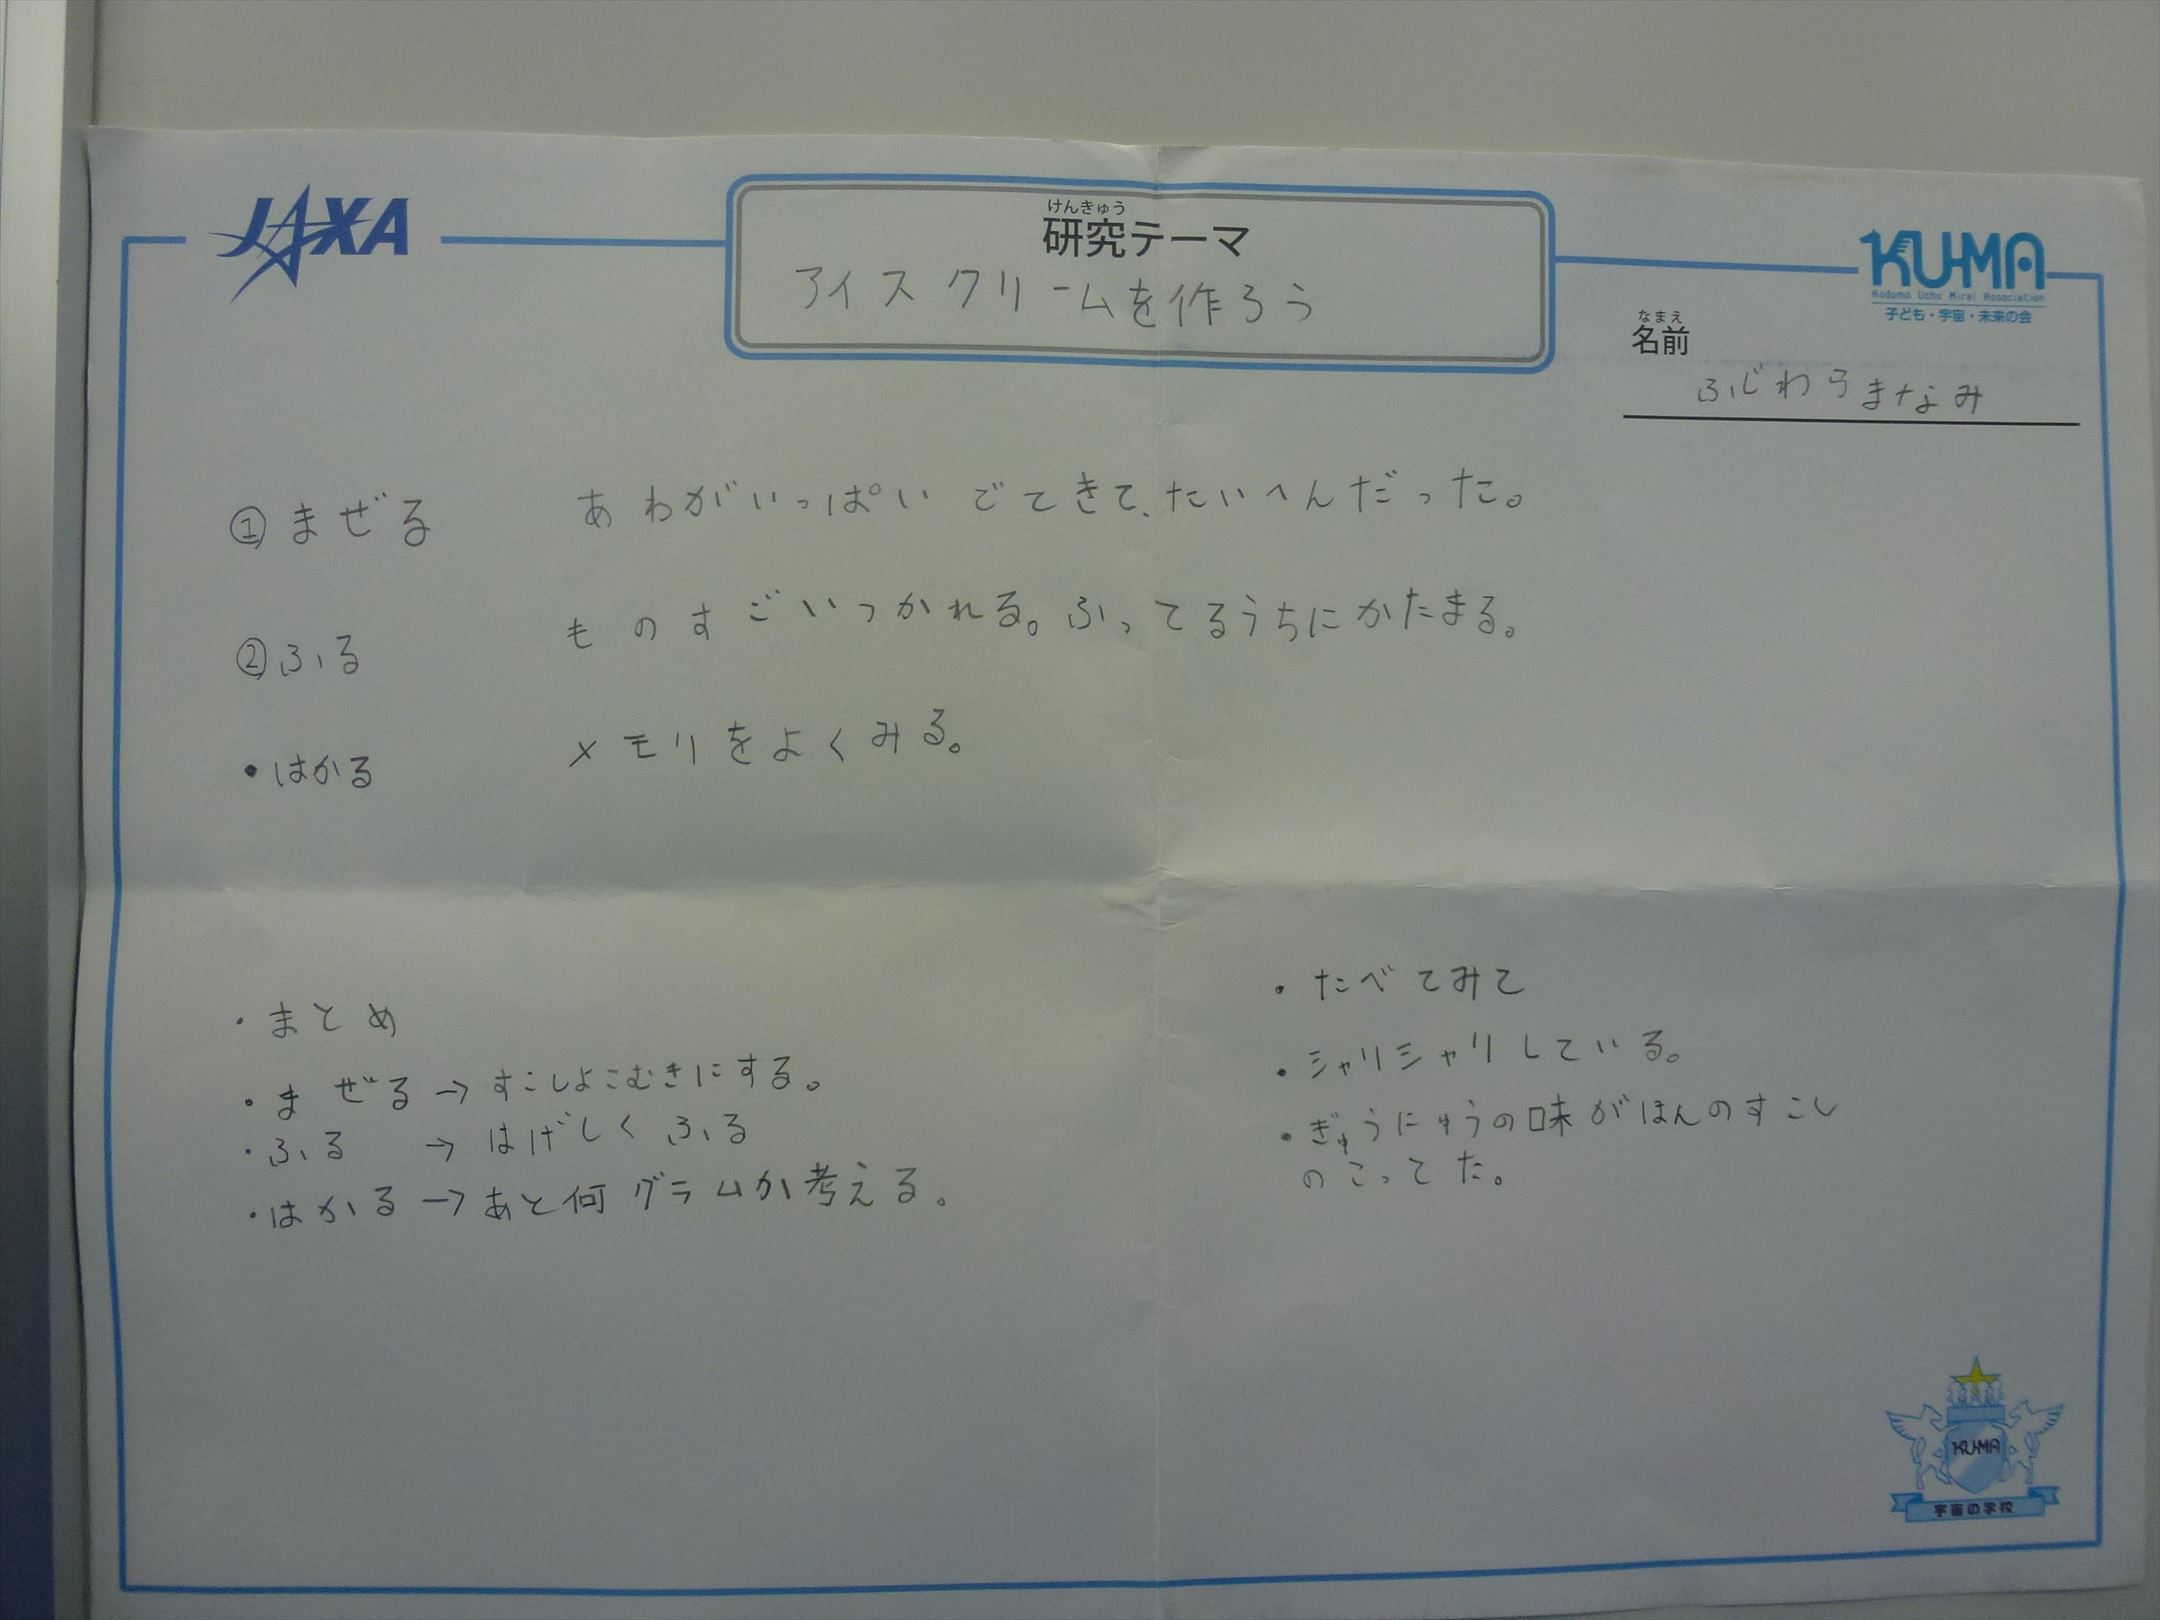 JAXA
けんきゅう
研究テーマ
アイスクリームを作ろう
KU-MA
Kodomo Uchu Mirai Association
子ども・宇宙・未来の会
なまえ
名前
ふじわらまなみ
①まぜる あわがいっぱいでてきて、たいへんだった。
②ふる ものすごいつかれる。ふってるうちにかたまる。
・はかる メモリをよくみる。
・まとめ
・まぜる→すこしよこむきにする。
・ふる →はげしくふる
・はかる→あと何グラムか考える。
・たべてみて
・シャリシャリしている。
・ぎゅうにゅうの味がほんのすこし
のこってた。
KU-MA
宇宙の学校